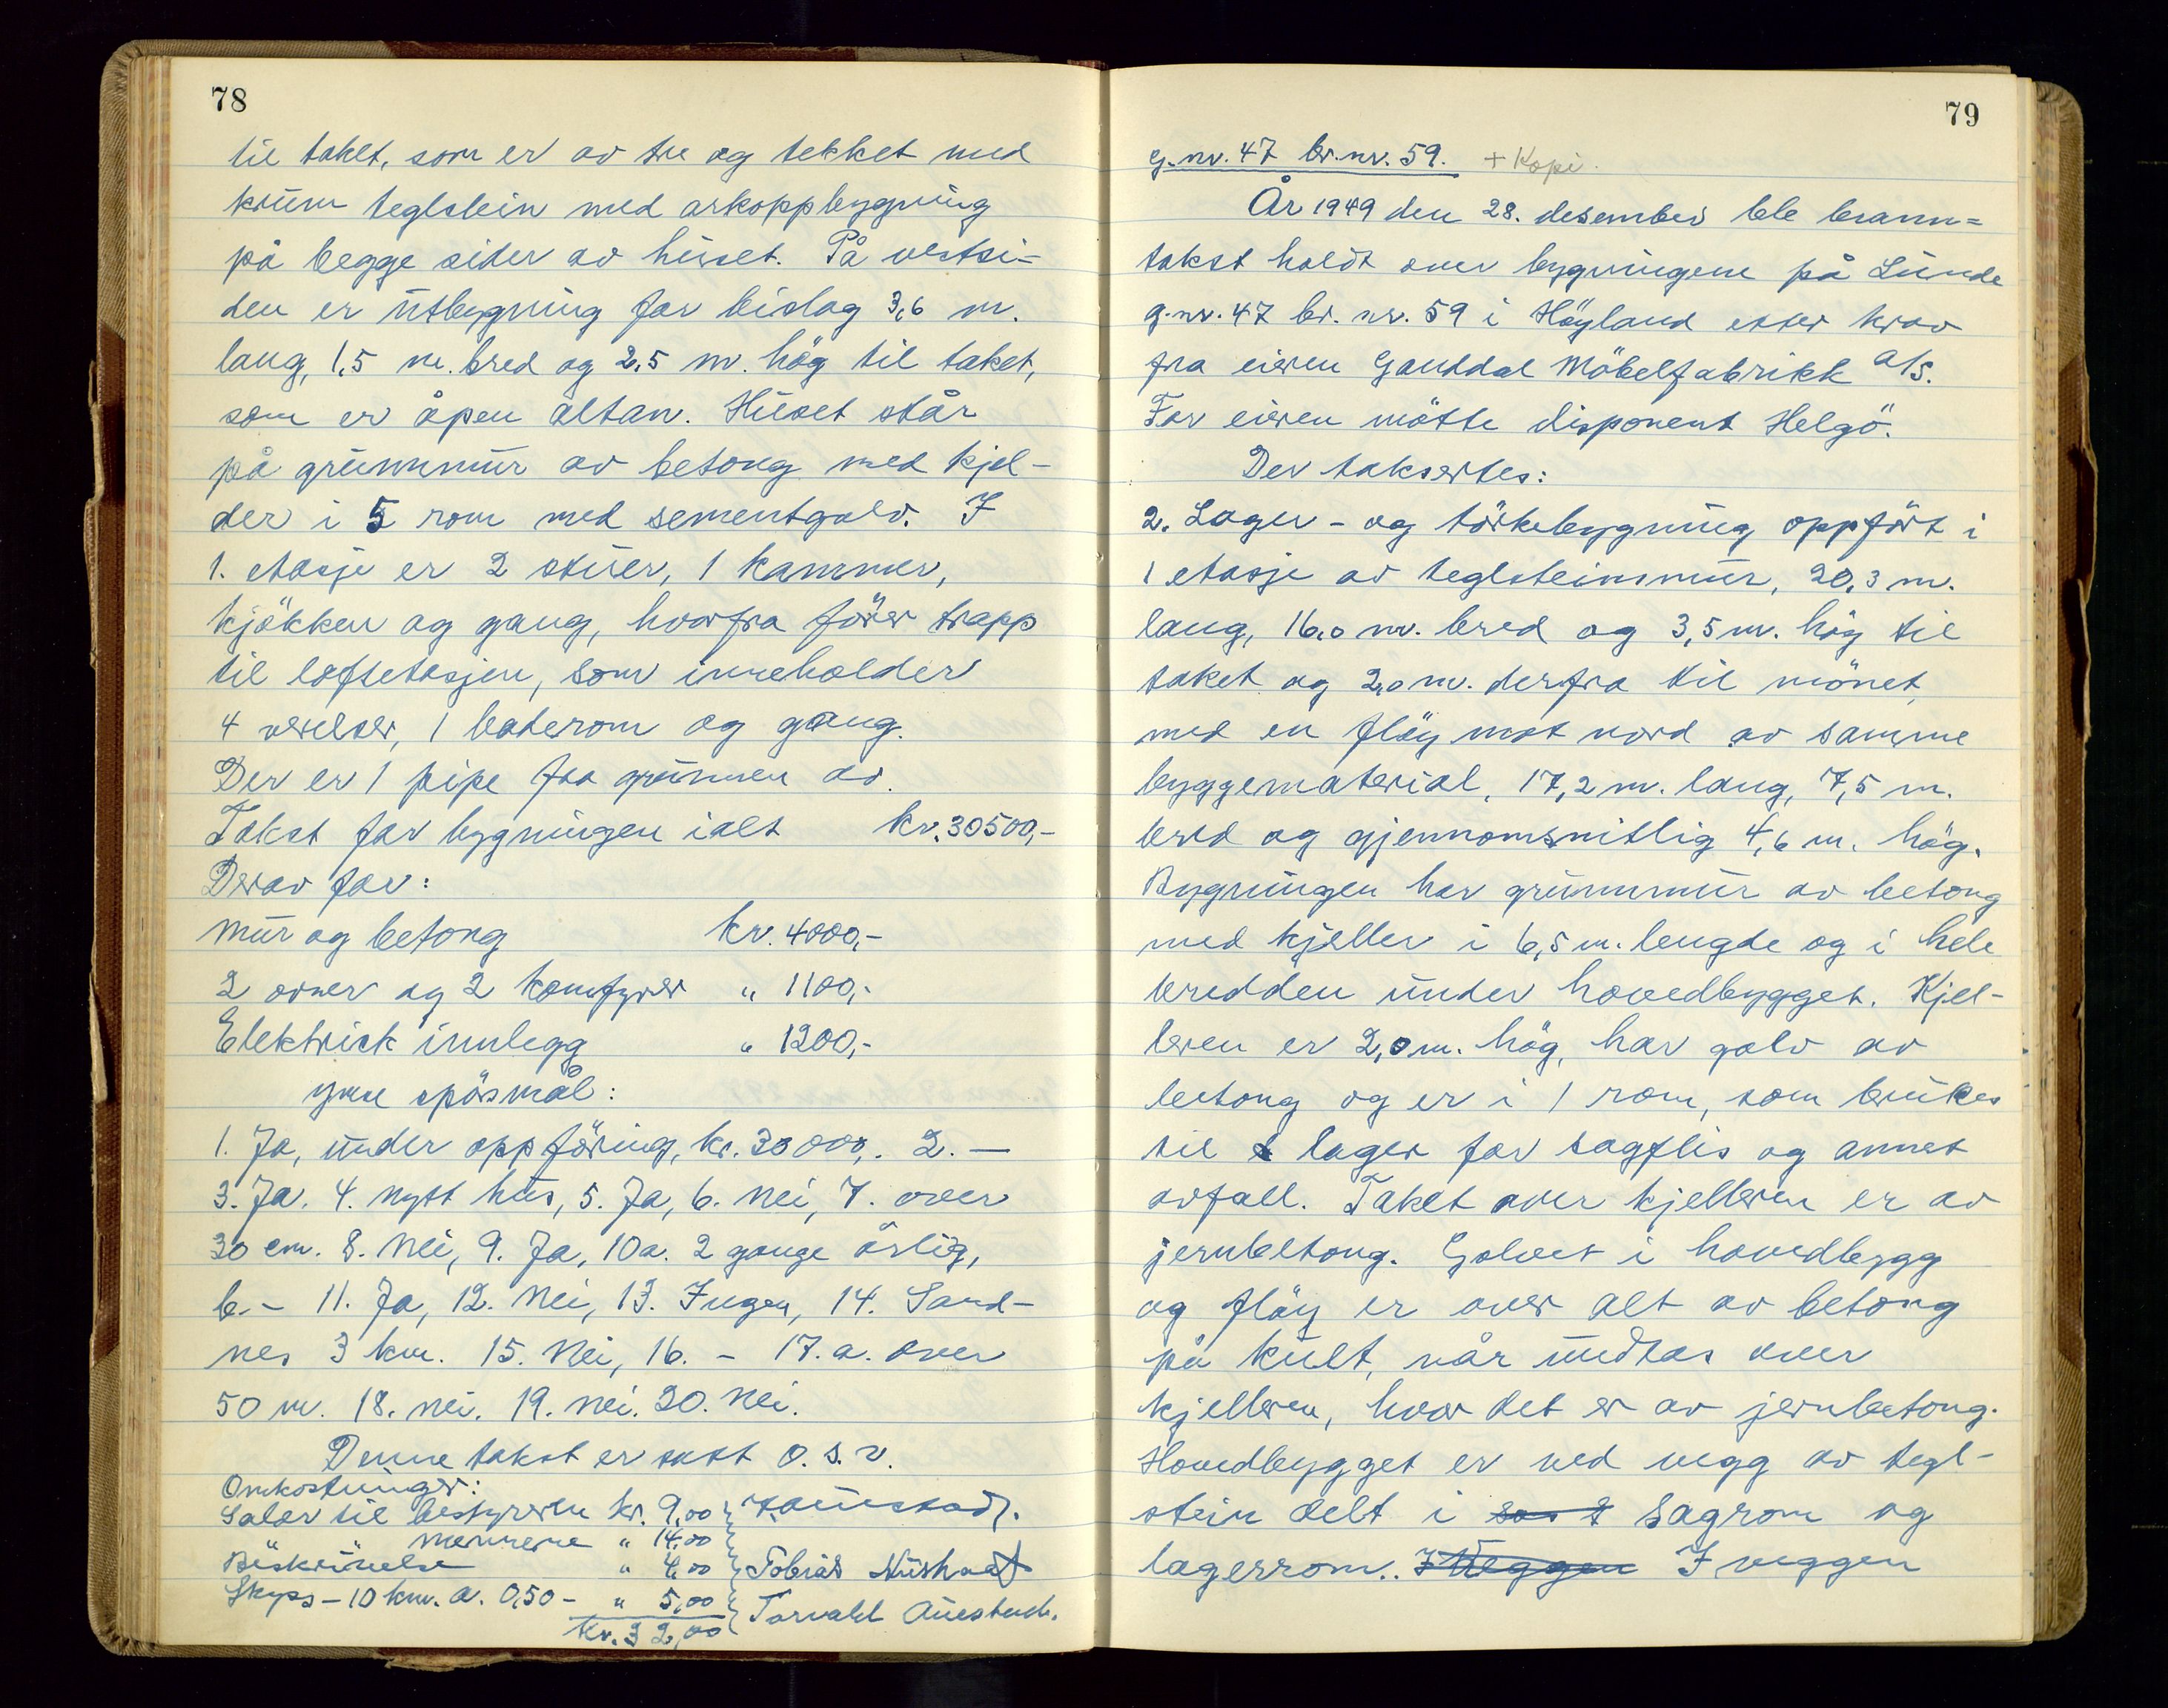 78
til taket, som er av tre og tekket med
krum teglstein med arkoppbygning
på begge sider av huset. På vestsi-
den er utbygning for bislag 3,6 m.
lang, 1,5 m. bred og 2,5 m. hög til taket,
som er åpen altan. Huset står
på grunnmur av betong med kjel-
der i 5 rom med sementgolv. I
1. etasje er 2 stuer, 1 kammer,
kjökken og gang, hvorfra förer trapp
til loftsetasjen, som inneholder
4 verelser, 1 baderom og gang.
Der er 1 pipe fra grunnen av.
Takst for bygningen ialt kr. 30500,-
Derav for:
Mur og betong kr. 4000,-
2 ovner og 2 komfyrer " 1100,-
Elektrisk innlegg " 1200,-
Ymse spörsmål:
1. Ja, under oppföring, kr. 30000,. 2. —
3. Ja. 4. nytt hus, 5. Ja, 6. Nei, 7. over
30 cm. 8. Nei, 9. Ja, 10a. 2 gange årlig,
b. - 11. Ja, 12. Nei, 13. Ingen, 14. Sand-
nes 3 km. 15. Nei, 16. - 17. a. over
50 m. 18. nei. 19. nei. 20. Nei.
Denne takst er satt o. s. v.
Omkostninger:
Salær til bestyreren kr. 9,00
mennene " 14,00
Beskrivelse " 4,00 Tobias
Skyss - 10 km. a. 0,50 - " 5,00 Torvald Auestad.
Kr. 32,00
79
g. nr. 47 br. nr. 59. + Kopi.
År 1949 den 28. desember ble brann=
takst holdt over bygningene på Lunde
g. nr. 47 br. nr. 59 i Höyland etter krav
fra eieren Ganddal Möbelfabrikk a/s.
For eieren mötte disponent Helgö.
Der takseertes:
2. Lager - og törkebygning oppfört i
1 etasje av teglsteinsmur, 20,3 m.
lang, 16,0 m. bred og 3,5 m. hög til
taket og 2,0 m. derfra til mönet,
med en flöy mot nord av samme
byggematerial, 17,2 m. lang, 7,5 m.
bred og gjennomsnitlig 4,6 m. hög.
Bygningen har grunnmur av betong
med kjeller i 6,5 m. lengde og i hele
bredden under hovedbygget. Kjel-
leren er 2,0 m. hög, har golv av
betong og er i 1 rom, som brukes
til lager for sagflis og annet
avfall. Taket over kjelleren er av
jernbetong. Golvet i hovedbygg
og flöy er over alt av betong
på kult, når undtas over
kjelleren, hvor det er av jernbetong.
Hovedbygget er ved vegg av tegl-
stein delt i sagrom og
lagerrom. I Veggen I veggen